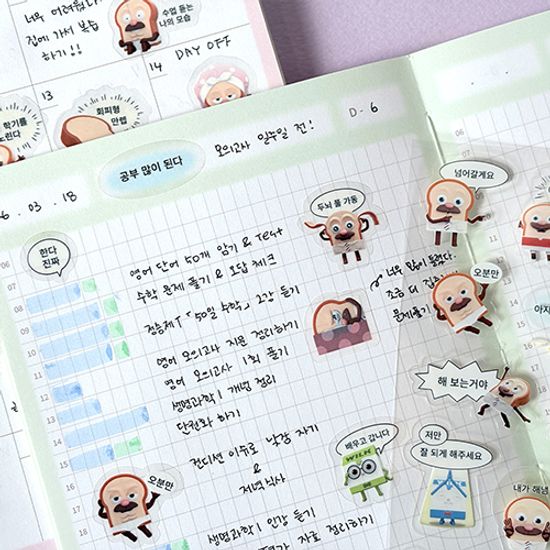 너무 어려웠다
집에 가서 복습
하기!!
수업 듣는
나의 모습
14 DAY OFF
13
학기를
회피형
만렙
공부 많이 된다
모의고사 일주일 전!
D-6
6.03.18
한다
진짜
06
07
08
09
10
11
12
13
14
15
16
17
18
영어 단어 50개 암기 & Test
수학 문제 풀기 & 오답 체크
정승제T「50일 수학」2강 듣기
영어 모의고사 지문 정리하기
영어 모의고사 1회 풀기
생명과학 I 개념 정리
단권화 하기
컨디션 이슈로 낮잠 자기
&
저녁식사
생명과학 I 인강 듣기
자료 정리하기
두뇌 풀 가동
너무 많이 틀렸다..
조금 더
문제풀기
넘어갈게요
오분만
해 보는거야
배우고 갑니다
WILK
저만
잘 되게 해주세요
오분만
내가 해냄
06
07
08